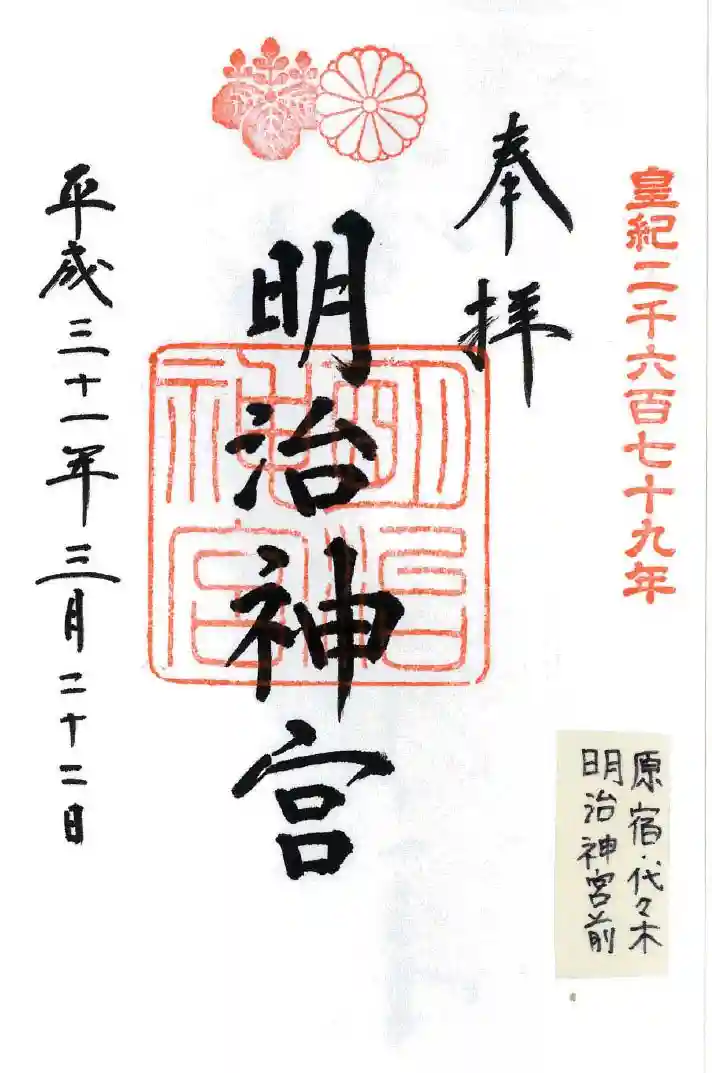 皇紀二千六百七十九年
奉拝
明治神宮
明治神宮
平成三十一年三月二十二日
原宿・代々木
明治神宮前